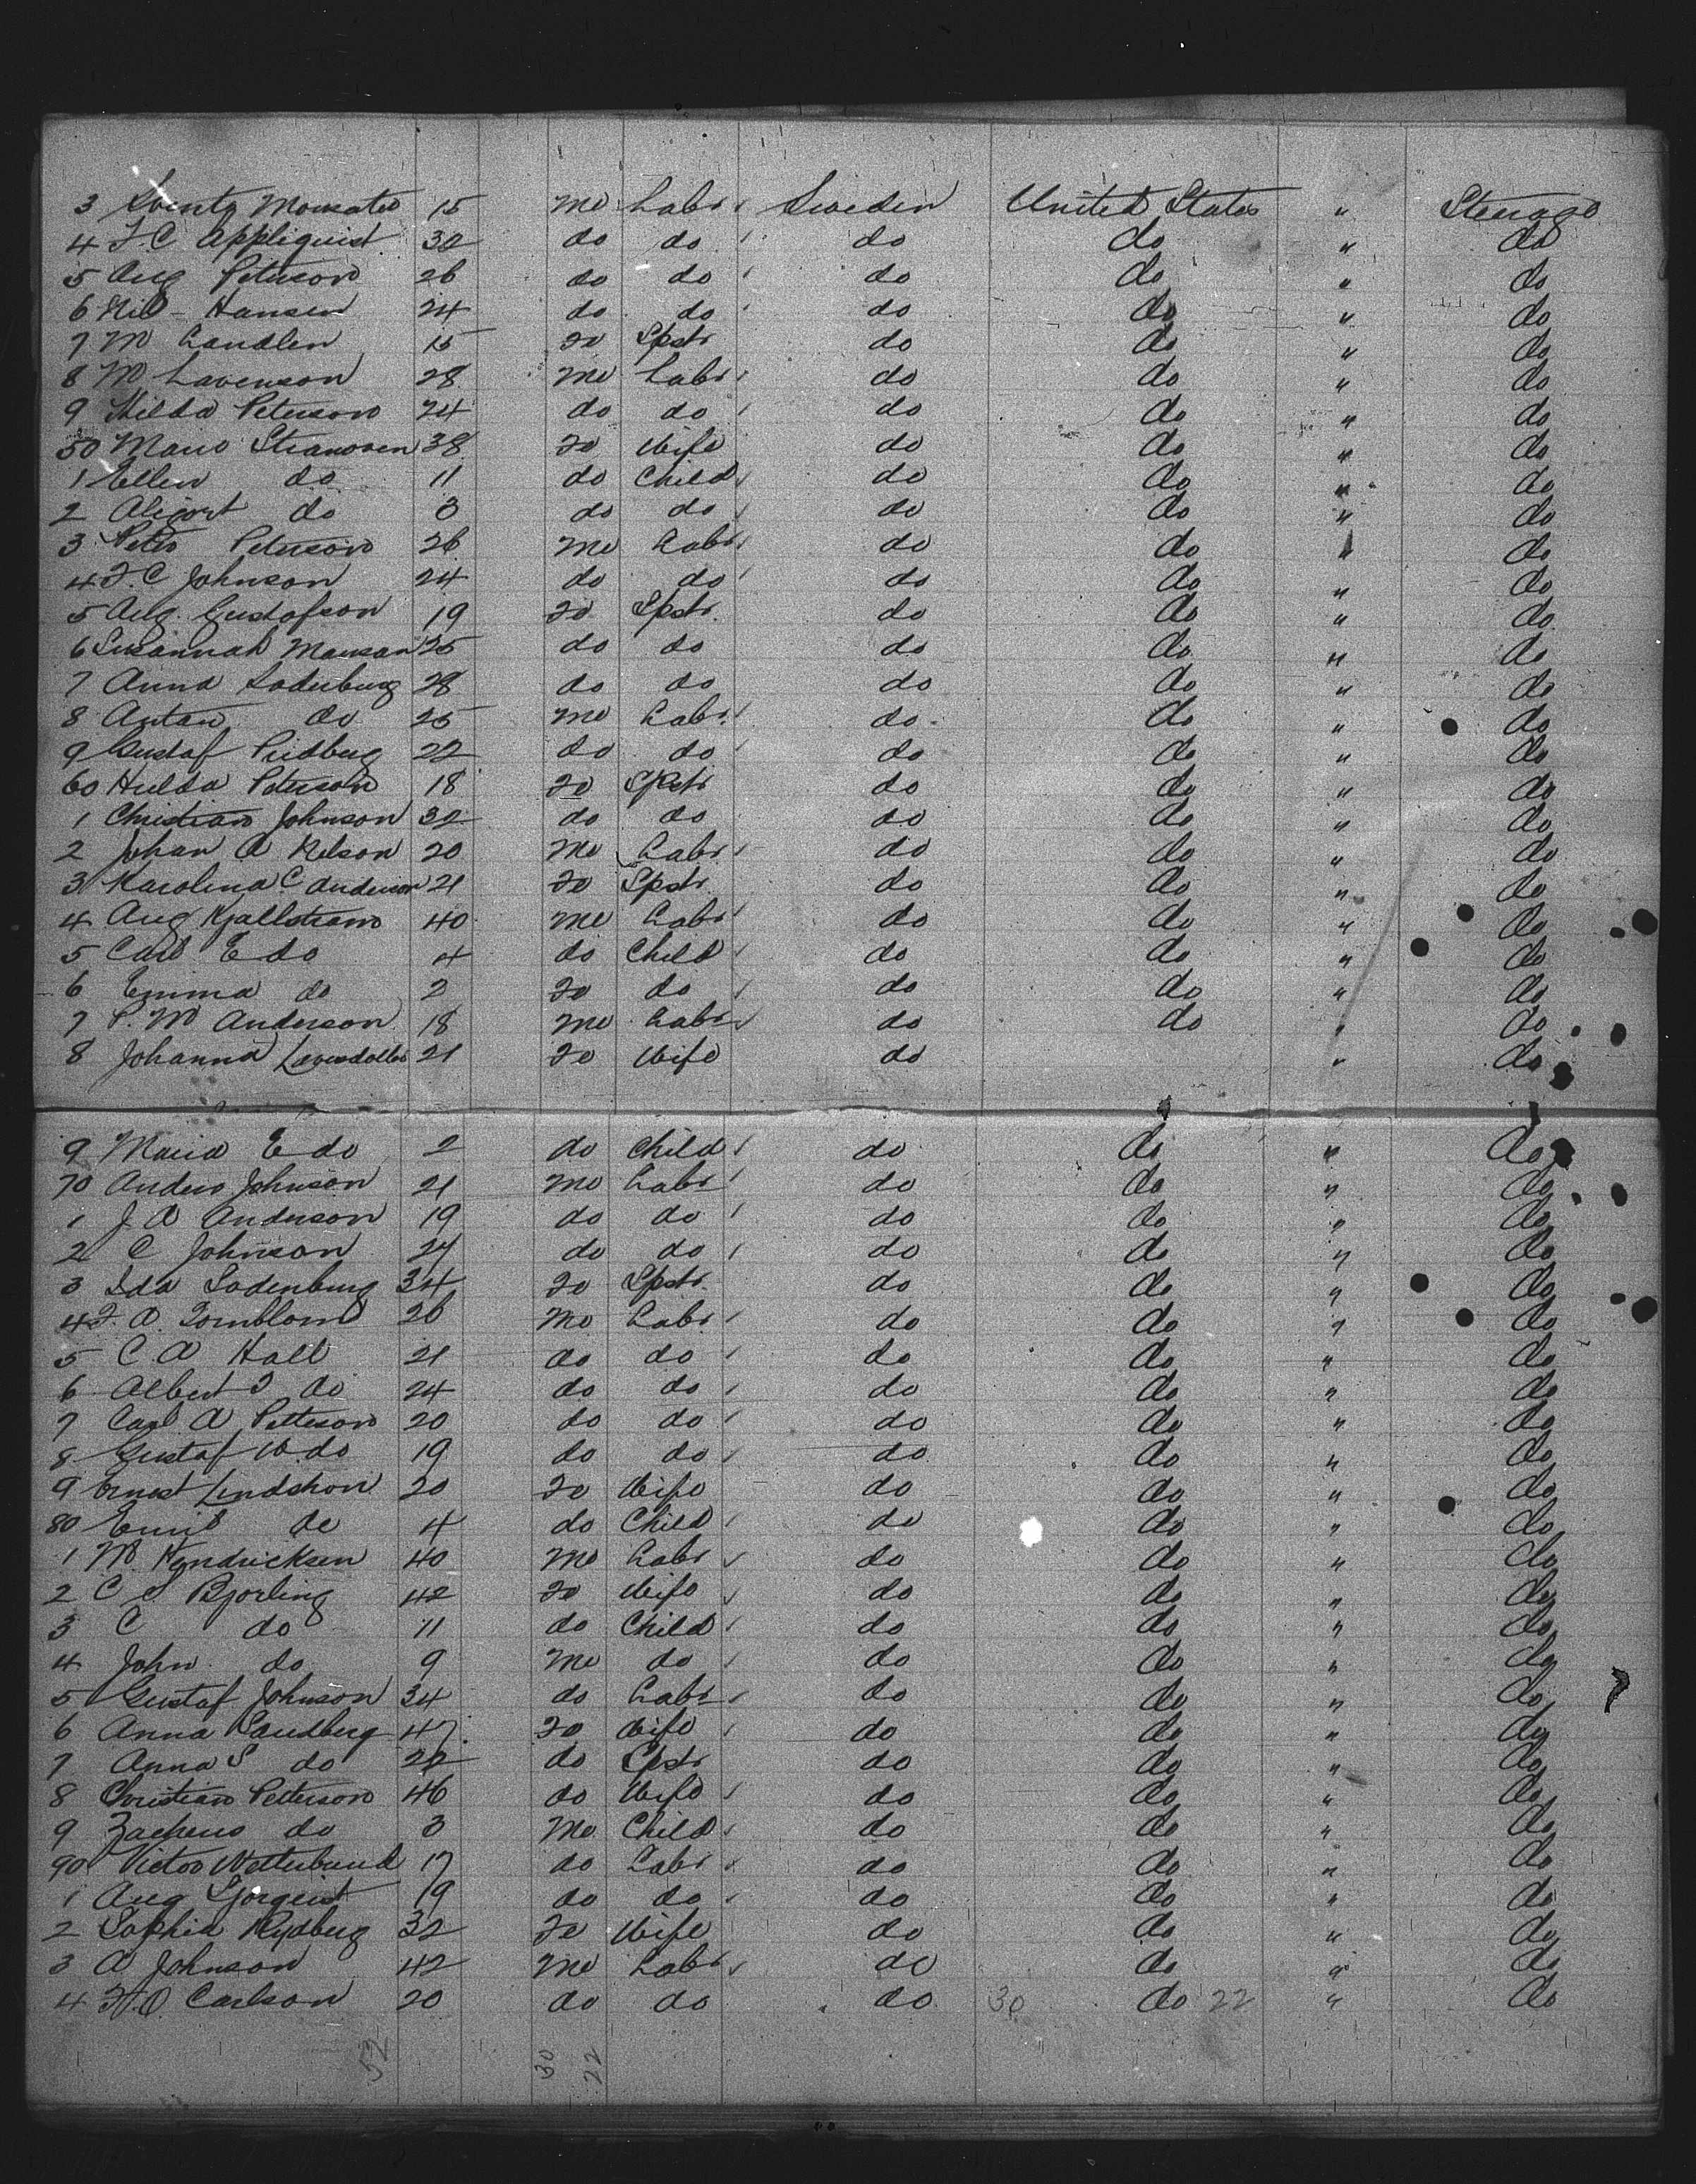 3 15 Me Labr Sweden United States " Steerage
4 F C Appliquist 32 do do do do " do
5 Aug Peterson 26 do do do do " do
6 Nils - Hansen 24 do do do do " do
7 M Landlen 15 Fe Spstr do do " do
8 M Lavenson 28 Me Labr do do " do
9 Hilda Peterson 24 do do do do " do
50 38 Fe Wife do do " do
1 Ellen do 11 do Child do do " do
2 do 3 do do do do " do
3 Peter Peterson 26 Me Labr do do " do
4 F. C Johnson 24 do do do do " do
5 Aug. Gustafson 19 Fe Spstr. do do " do
6 Susannah Mansan 25 do do do do " do
7 Anna Soderburg 28 do do do do " do
8 Antan do 25 Me Labr. do do " do
9 Gustaf 22 do do do do " do
60 Hulda Peterson 18 Fe Spstr do do " do
1 Christian Johnson 32 do do do do " do
2 Johan A Nelson 20 Me Labr do do " do
3 Karolina C Anderson 21 Fe Spstr do do " do
4 Aug Kjallstrom 40 Me Labr do do " do
5 Carl E do 4 do Child do do " do
6 Emma do 2 Fe do do do " do
7 P. M Anderson 18 Me Labr do do " do
8 Johanna 21 Fe Wife do " do
9 Maria E do 2 do Child do do " do
70 Anders Johnson 21 Me Labr do do " do
1 J A Anderson 19 do do do do " do
2 C Johnson 24 do do do do " do
3 Ida Sodenburg 34 Fe Spstr. do do " do
4 F. A. Tornblom 26 Me Labr. do do " do
5 C. A Hall 21 do do do do " do
6 Albert F do 24 do do do do " do
7 Carl A Petterson 20 do do do do " do
8 Gustaf W. do 19 do do do do " do
9 Ernest Lindshon 20 Fe Wife do do " do
80 Emil do 4 do Child do do " do
1 M. Hendricksen 40 Me Labr do do " do
2 C S Bjorling 42 Fe Wife do do " do
3 C do 11 do Child do do " do
4 John do 9 Me do do do " do
5 Gustaf Johnson 34 do Labr do do " do
6 Anna Sandberg 47 Fe Wife do do " do
7 Anna S do 22 do Spstr do do " do
8 Christian Petterson 46 do Wife do do " do
9 Zacheus do 3 Me Child do do " do
90 Victor Wetterbund 17 do Labr do do " do
1 Aug Sjorquist 19 do do do do " do
2 Sophia Rydberg 32 Fe Wife do do " do
3 A Johnson 42 Me Labr do do " do
4 F. O. Carlson 20 do do do 30 do 22 " do
52 30 22